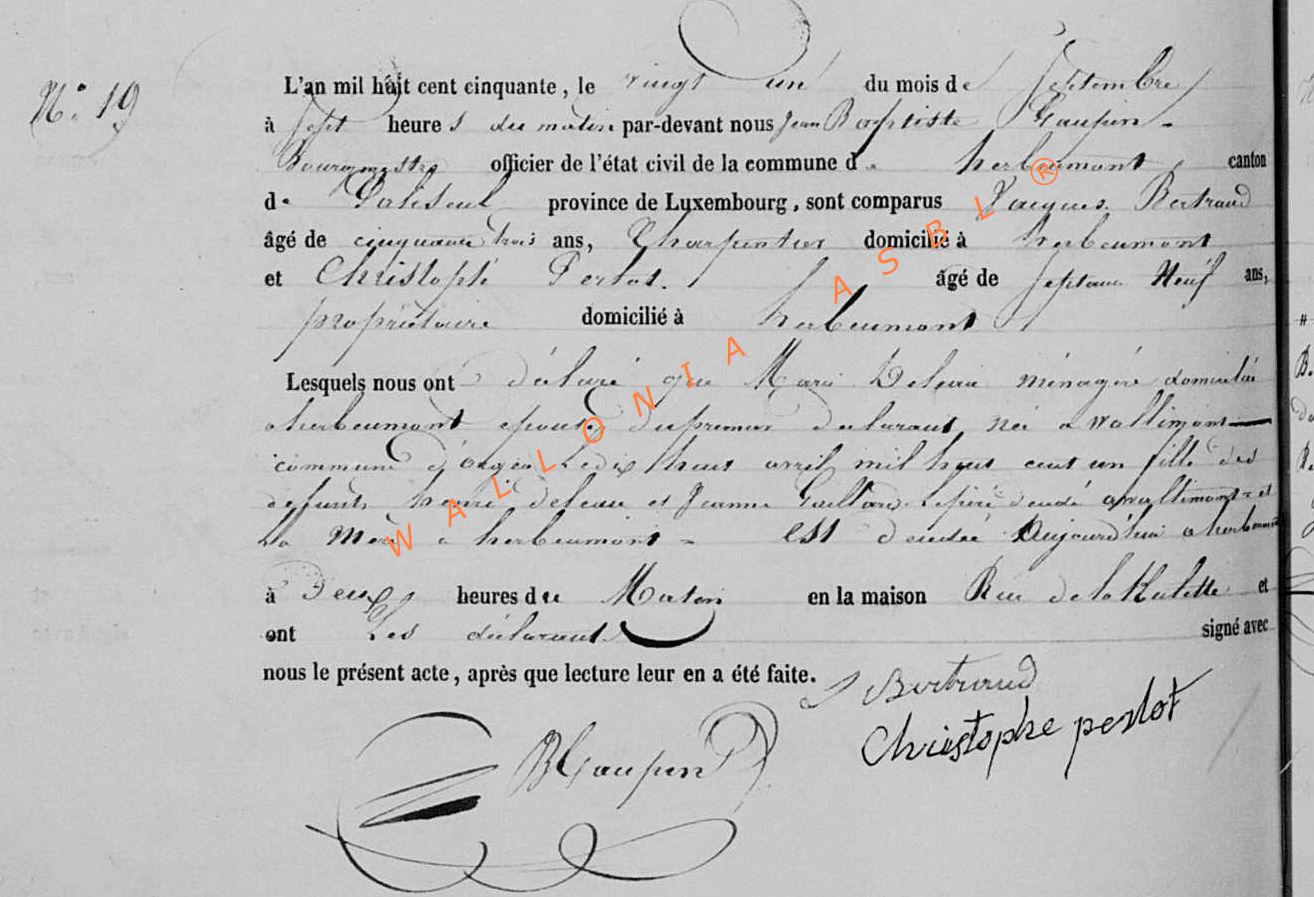 N° 19
L'an mil huit cent cinquante, le vingt un du mois de Septembre
à Sept heures du matin par-devant nous Jean Baptiste Gaupin
Bourgmestre officier de l'état civil de la commune d. herbeumont canton
de Paliseul province de Luxembourg, sont comparus Jacques Bertrand
âgé de cinquante trois ans, Charpentier domicilié à herbeumont
et Christophe Perlot. âgé de Septante Neuf ans,
propriétaire domicilié à herbeumont
Lesquels nous ont déclaré que Marie Deleau ménagère domiciliée
a herbeumont epouse du premier declarant, née a Wallimont
commune d'orgeo Le dix huit avril mil huit cent un fille des
defunts henri deleau et Jeanne Gaillard. Le père décédé a wallimont et
La Mère a herbeumont = est décédée Aujourd'hui a herbeumont
à Deux heures du Matin en la maison Rue de la et
ont Les déclarants signé avec
nous le présent acte, après que lecture leur en a été faite.
J Bertrand
Christophe perlot
JB Gaupin
WALLONIA ASBL ®